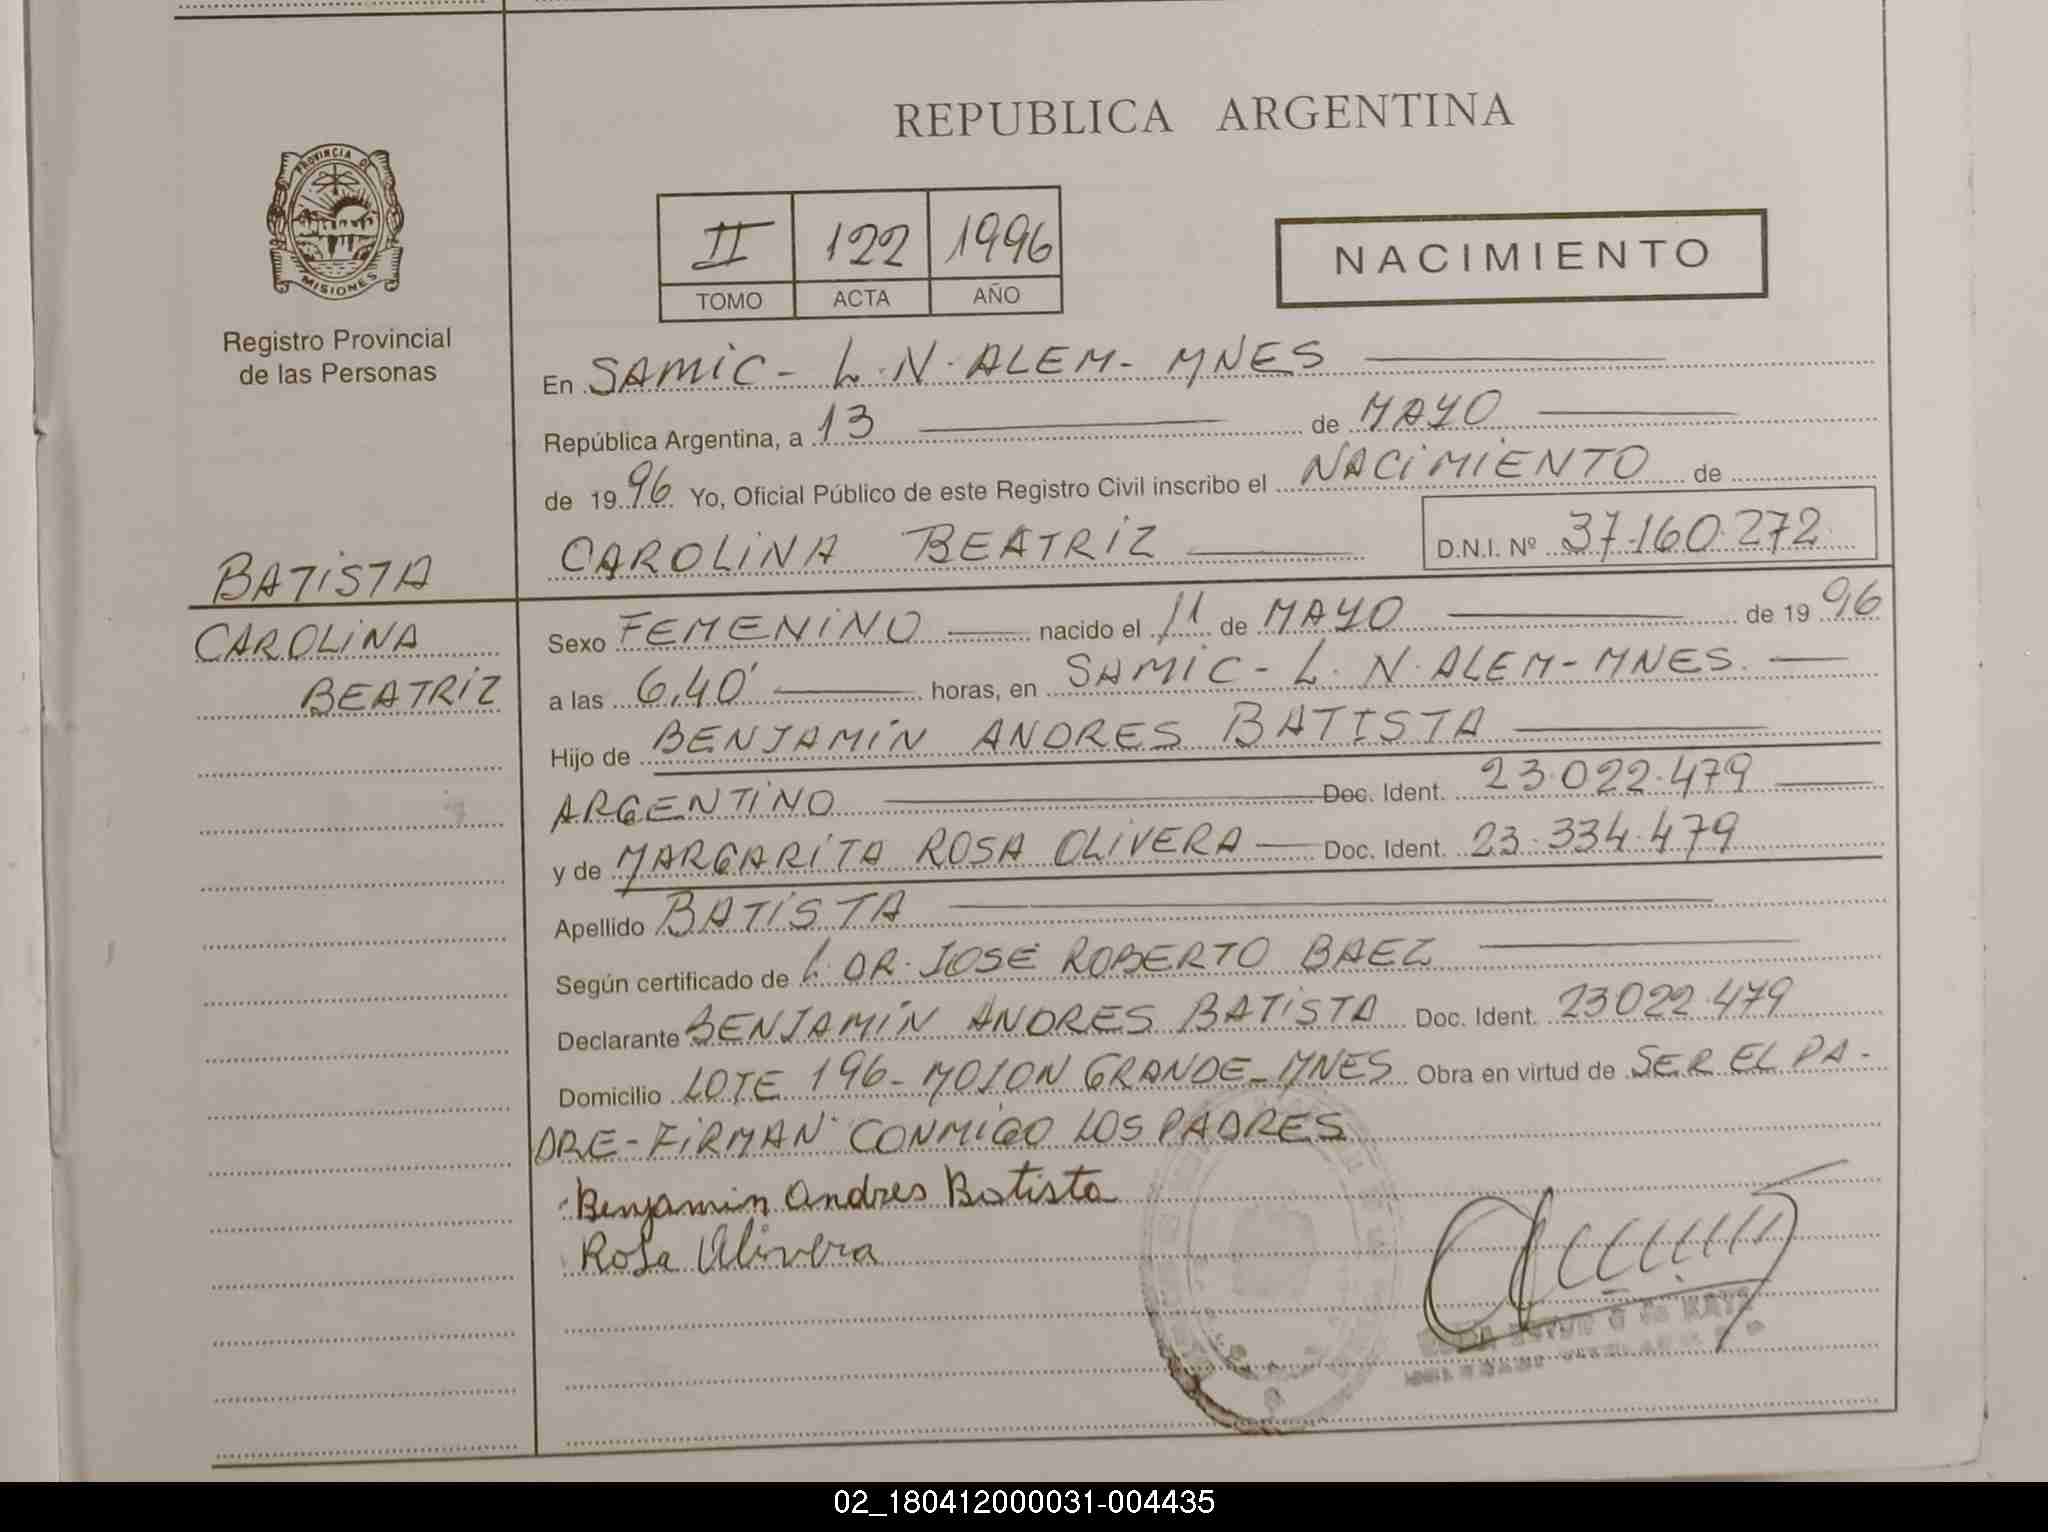 REPUBLICA ARGENTINA
PROVINCIA DE
MISIONES
Registro Provincial
de las Personas
II 122 1996
TOMO ACTA AÑO
NACIMIENTO
En SAMIC - L.N. ALEM - MNES
República Argentina, a 13 de MAYO
de 1996 Yo, Oficial Público de este Registro Civil inscribo el NACIMIENTO de
CAROLINA BEATRIZ D.N.I. Nº 37.160.272
BATISTA
CAROLINA
BEATRIZ
Sexo FEMENINO nacido el 11 de MAYO de 1996
a las 6,40' horas, en SAMIC - L. N. ALEM - MNES.
Hijo de BENJAMIN ANDRES BATISTA
ARGENTINO Doc. Ident. 23.022.479
y de MARGARITA ROSA OLIVERA Doc. Ident. 23.334.479
Apellido BATISTA
Según certificado de DR. JOSE ROBERTO BAEZ
Declarante BENJAMIN ANDRES BATISTA Doc. Ident. 23022.479
Domicilio LOTE 196 - MOJON GRANDE - MNES Obra en virtud de SER EL PA-
DRE - FIRMAN CONMIGO LOS PADRES
Benjamin Andres Batista
Rosa Olivera
02_180412000031-004435